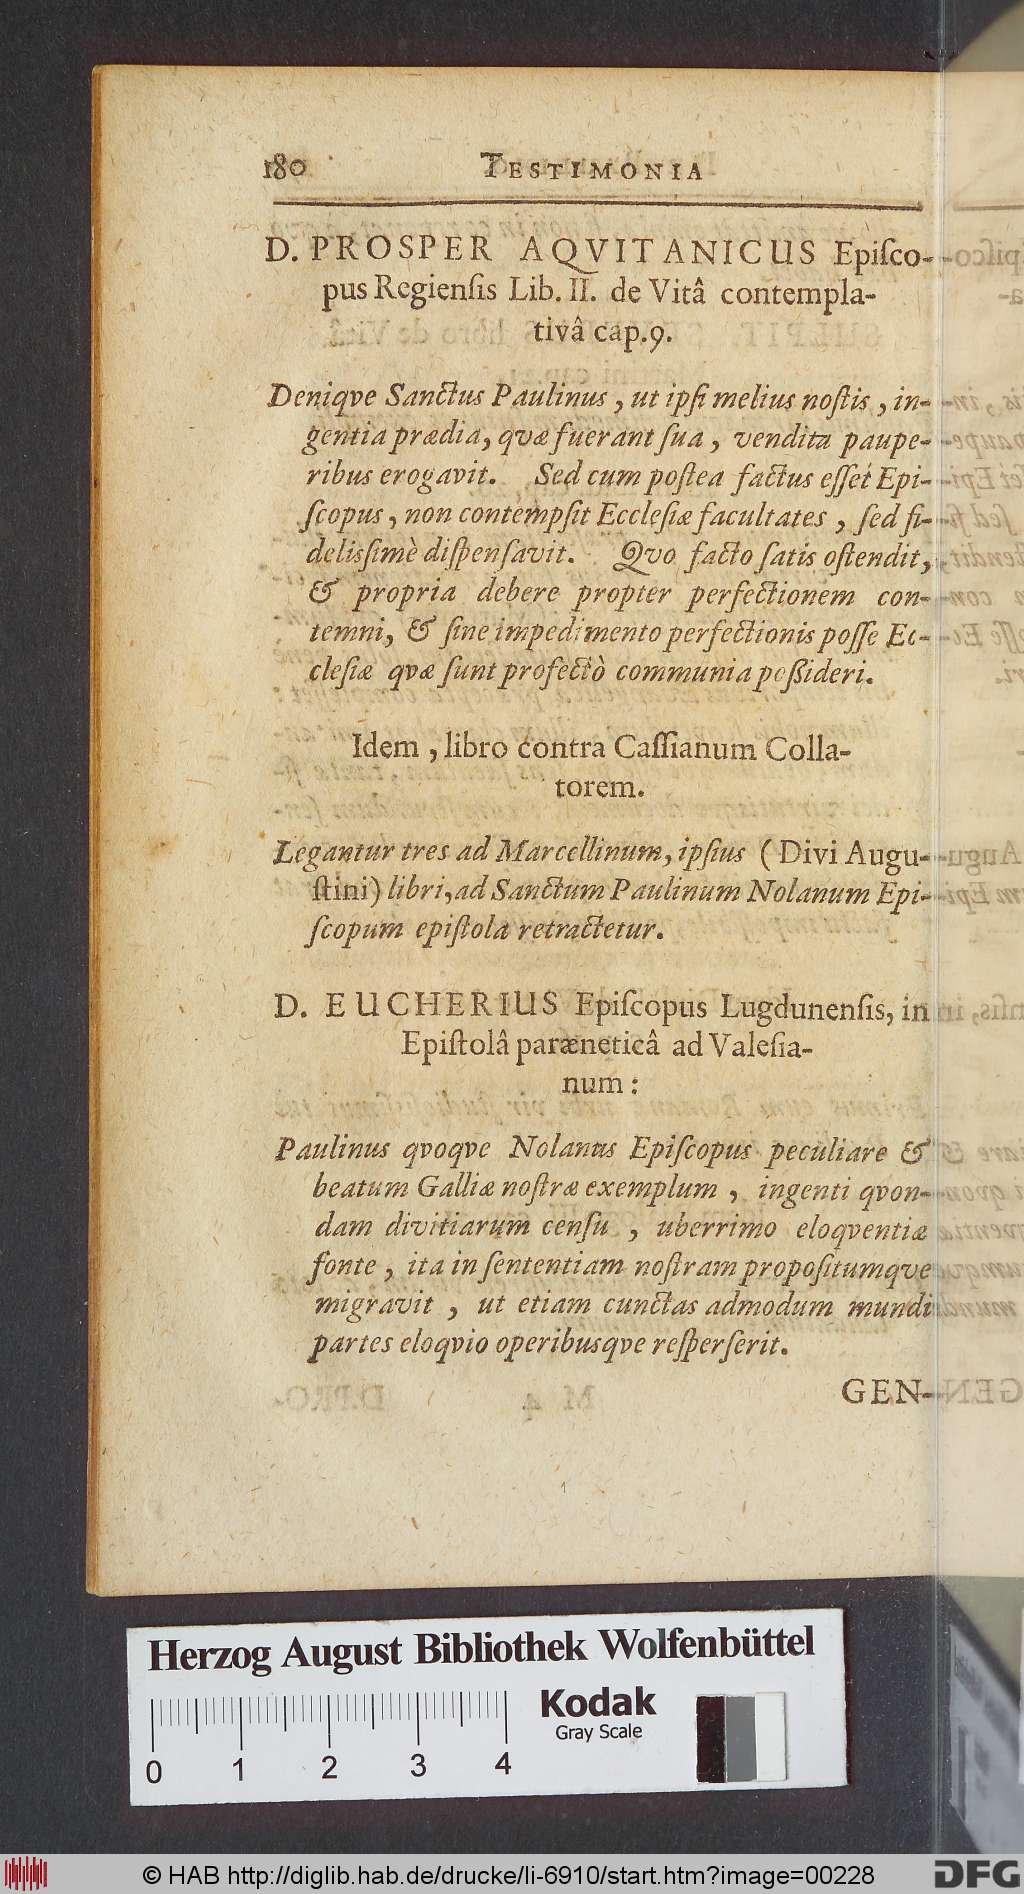 180 TESTIMONIA
D. PROSPER AQVITANICUS Epiſco-
pus Regienſis Lib. II. de Vitâ contempla-
tivâ cap. 9.
Deniqve Sanctus Paulinus, ut ipſi melius noſtis, in-
gentia prædia, qvæ fuerant ſua, vendita paupe-
ribus erogavit. Sed cum poſtea factus eſſet Epi-
ſcopus, non contempſit Eccleſiæ facultates, ſed fi-
deliſſimè diſpenſavit. Qvo facto ſatis oſtendit,
& propria debere propter perfectionem con-
temni, & ſine impedimento perfectionis poſſe Ec-
cleſiæ qvæ ſunt profectò communia poßideri.
Idem, libro contra Caſſianum Colla-
torem.
Legantur tres ad Marcellinum, ipſius (Divi Augu-
ſtini) libri, ad Sanctum Paulinum Nolanum Epi-
ſcopum epiſtola retractetur.
D. EUCHERIUS Epiſcopus Lugdunenſis, in
Epiſtolâ parænetica ad Valeſia-
num:
Paulinus qvoqve Nolanus Epiſcopus peculiare &
beatum Galliæ noſtræ exemplum, ingenti qvon-
dam divitiarum cenſu, uberrimo eloqventiæ
fonte, ita in ſententiam noſtram propoſitumqve
migravit, ut etiam cunctas admodum mundi
partes eloqvio operibusqve reſperſerit.
GEN-
Herzog August Bibliothek Wolfenbüttel
Kodak
Gray Scale
0 1 2 3 4
© HAB http://diglib.hab.de/drucke/li-6910/start.htm?image=00228
DFG